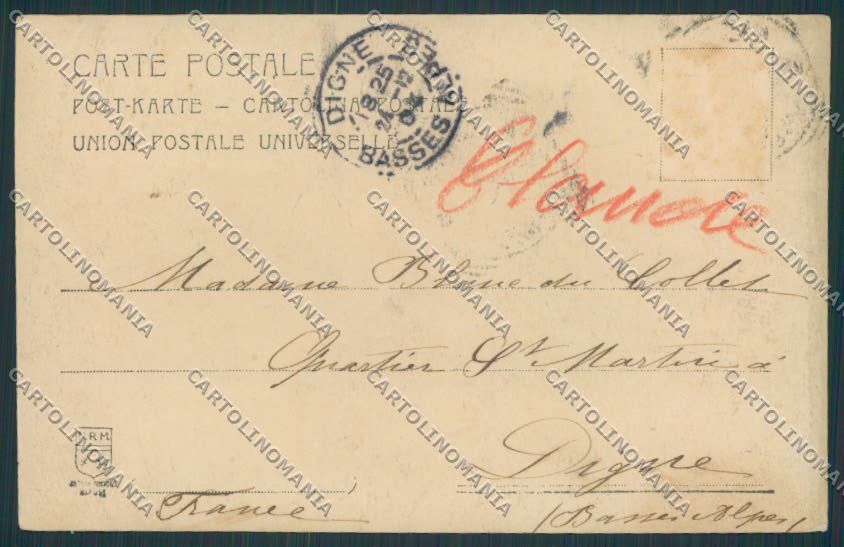 CARTE POSTALE
POST-KARTE – CARTOLINA POSTALE
UNION POSTALE UNIVERSELLE
DIGNE
8 25
24 - 12
04
BASSES
Madame Blanc du Collet
Quartier St Martin à
Digne
(Basses Alpes)
France
R.M.
CARTOLINOMANIA